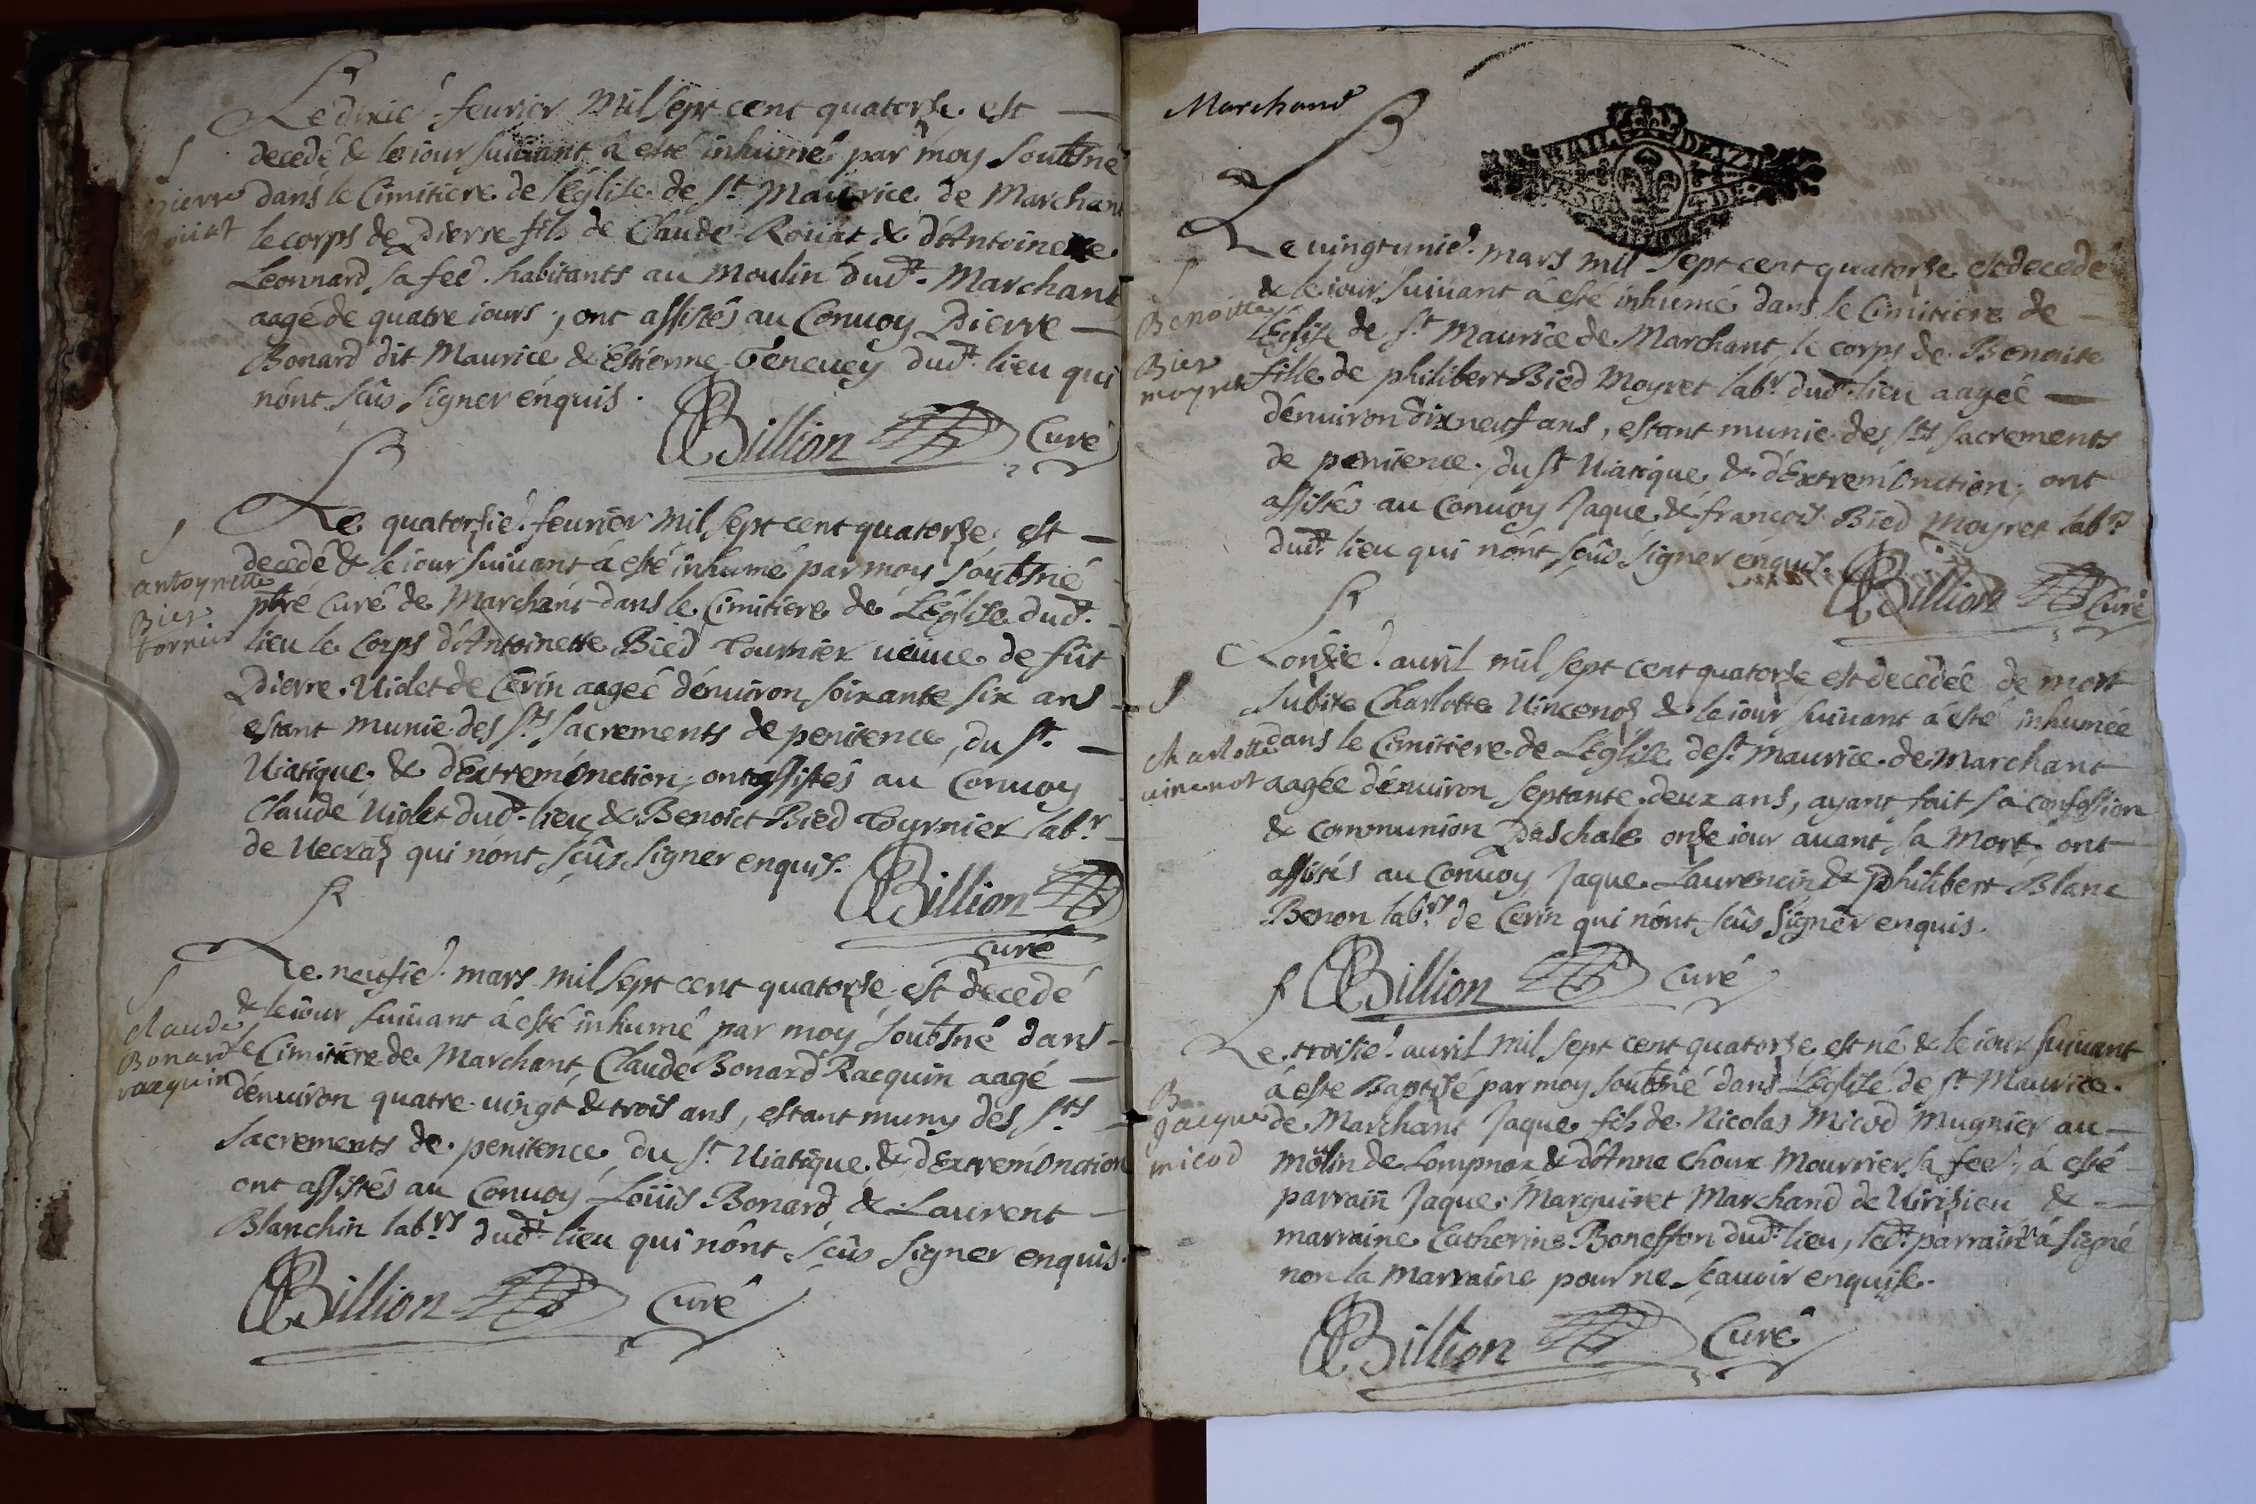 S
Le dixié. feurier Mil sept cent quatorze est
decedé & le iour suiuant a esté inhumé par moy soubsné
dans le Cimitiere de l'église de St. Maurice de Marchant
le corps de Pierre fils de Claude Rouat & d'Antoinette
Leonnard sa feê. habitants au Moulin dudt. Marchant
aagé de quatre iours, ont assistés au Conuoy Pierre
Bonard dit Maurice & Estienne Teneuey dudt. lieu qui
nônt sçûs signer énquis.
Billion Curé
S
antoynette
Bied
tornier
Le quatorzié. feurier mil sept cent quatorze est
decedé & le iour suiuant a esté inhumé par moy soubsné
ptre Curé de Marchant dans le Cimitiere de L'église dudt.
lieu le Corps d'Antoinette Bied Tournier ueuue de fût
Pierre Uiolet de Cerin aagée d'énuiron soixante six ans
estant munie des Sts. sacrements de penitence, du St.
Uiatique & d'ExtremÔnction, ont assistés au Conuoy
Claude Uiolet dudt. lieu & Benoict Bied Tournier labr.
de Uecraz qui nont sçûs signer enquis.
Billion
Curé
S
Claude
Bonard
racquin
Le neufié. mars mil sept cent quatorze est decedé
& le iour suiuant á esté inhumé par moy soubsné dans
le Cimitiere de Marchant, Claude Bonard Racquin aagé
dénuiron quatre uingt & trois ans, estant muny des Sts.
sacrements de penitence du St. Uiatique & d'ExtremÔnction
ont assistés au Conuoy Loüis Bonard & Laurent
Blanchin labrs. dudt. lieu qui nônt sçûs signer enquis.
Billion Curé
Marchand
S
Benoitte
Bied
moyret
Le uingtunié. mars mil sept cent quatorze est decedé
& le iour suiuant á esté inhumé dans le Cimitiere de
L'Église de St. Maurice de Marchant, le corps de Benoite
fille de philibert Bied Moyret labr. dudt. lieu aagée
dénuiron dix neuf ans, estant munie des Sts sacrements
de penitence, du St Uiatique & d'ExtremÔnction, ont
assistés au Conuoy Jaque & françois Bied Moyret labrs
dudt. lieu qui nônt sçûs signer enquis.
Billion Curé
S
Charlotte
uincenot
L'onzié. auril mil sept cent quatorze est decedée de mort
subite Charlotte Uincenoz & le iour suiuant a esté inhumée
dans le Cimitiere de L'Église de St. Maurice de Marchant
aagée d'énuiron septante deux ans, ayant fait sa confession
& communion Paschale onze iour auant sa Mort, ont
assistés au Conuoy Jaque Laurencin & Philibert Blanc
Benon labrs. de Cerin qui nônt sçûs signer enquis.
Billion Curé
B.
Jacque
micod
Le troisié. auril mil sept cent quatorze est né & le iour suiuant
á esté Baptisé par moy soubsné dans L'église de St. Maurice
de Marchant Jaque fils de Nicolas Micod Mugnier au
molin de Lompnaz & d'Anne Choux Mourrier sa feê. á esté
parrain Jaque Marquiret Marchand de Uirizieu &
marraine Catherine Boneffon dudt. lieu, ledt. parrain a signé
non la marraine pour ne sçauoir enquise.
Billion Curé